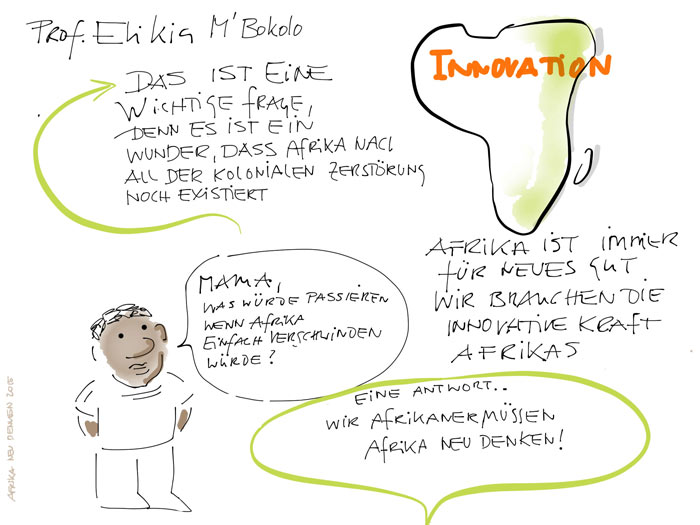 Prof. Elikia M'Bokolo
DAS IST EINE
WICHTIGE FRAGE,
DENN ES IST EIN
WUNDER, DASS AFRIKA NACH
ALL DER KOLONIALEN ZERSTÖRUNG
NOCH EXISTIERT
INNOVATION
AFRIKA IST IMMER
FÜR NEUES GUT.
WIR BRAUCHEN DIE
INNOVATIVE KRAFT
AFRIKAS
MAMA,
WAS WÜRDE PASSIEREN
WENN AFRIKA
EINFACH VERSCHWINDEN
WÜRDE?
EINE ANTWORT..
WIR AFRIKANER MÜSSEN
AFRIKA NEU DENKEN!
AFRIKA NEU DENKEN 2015